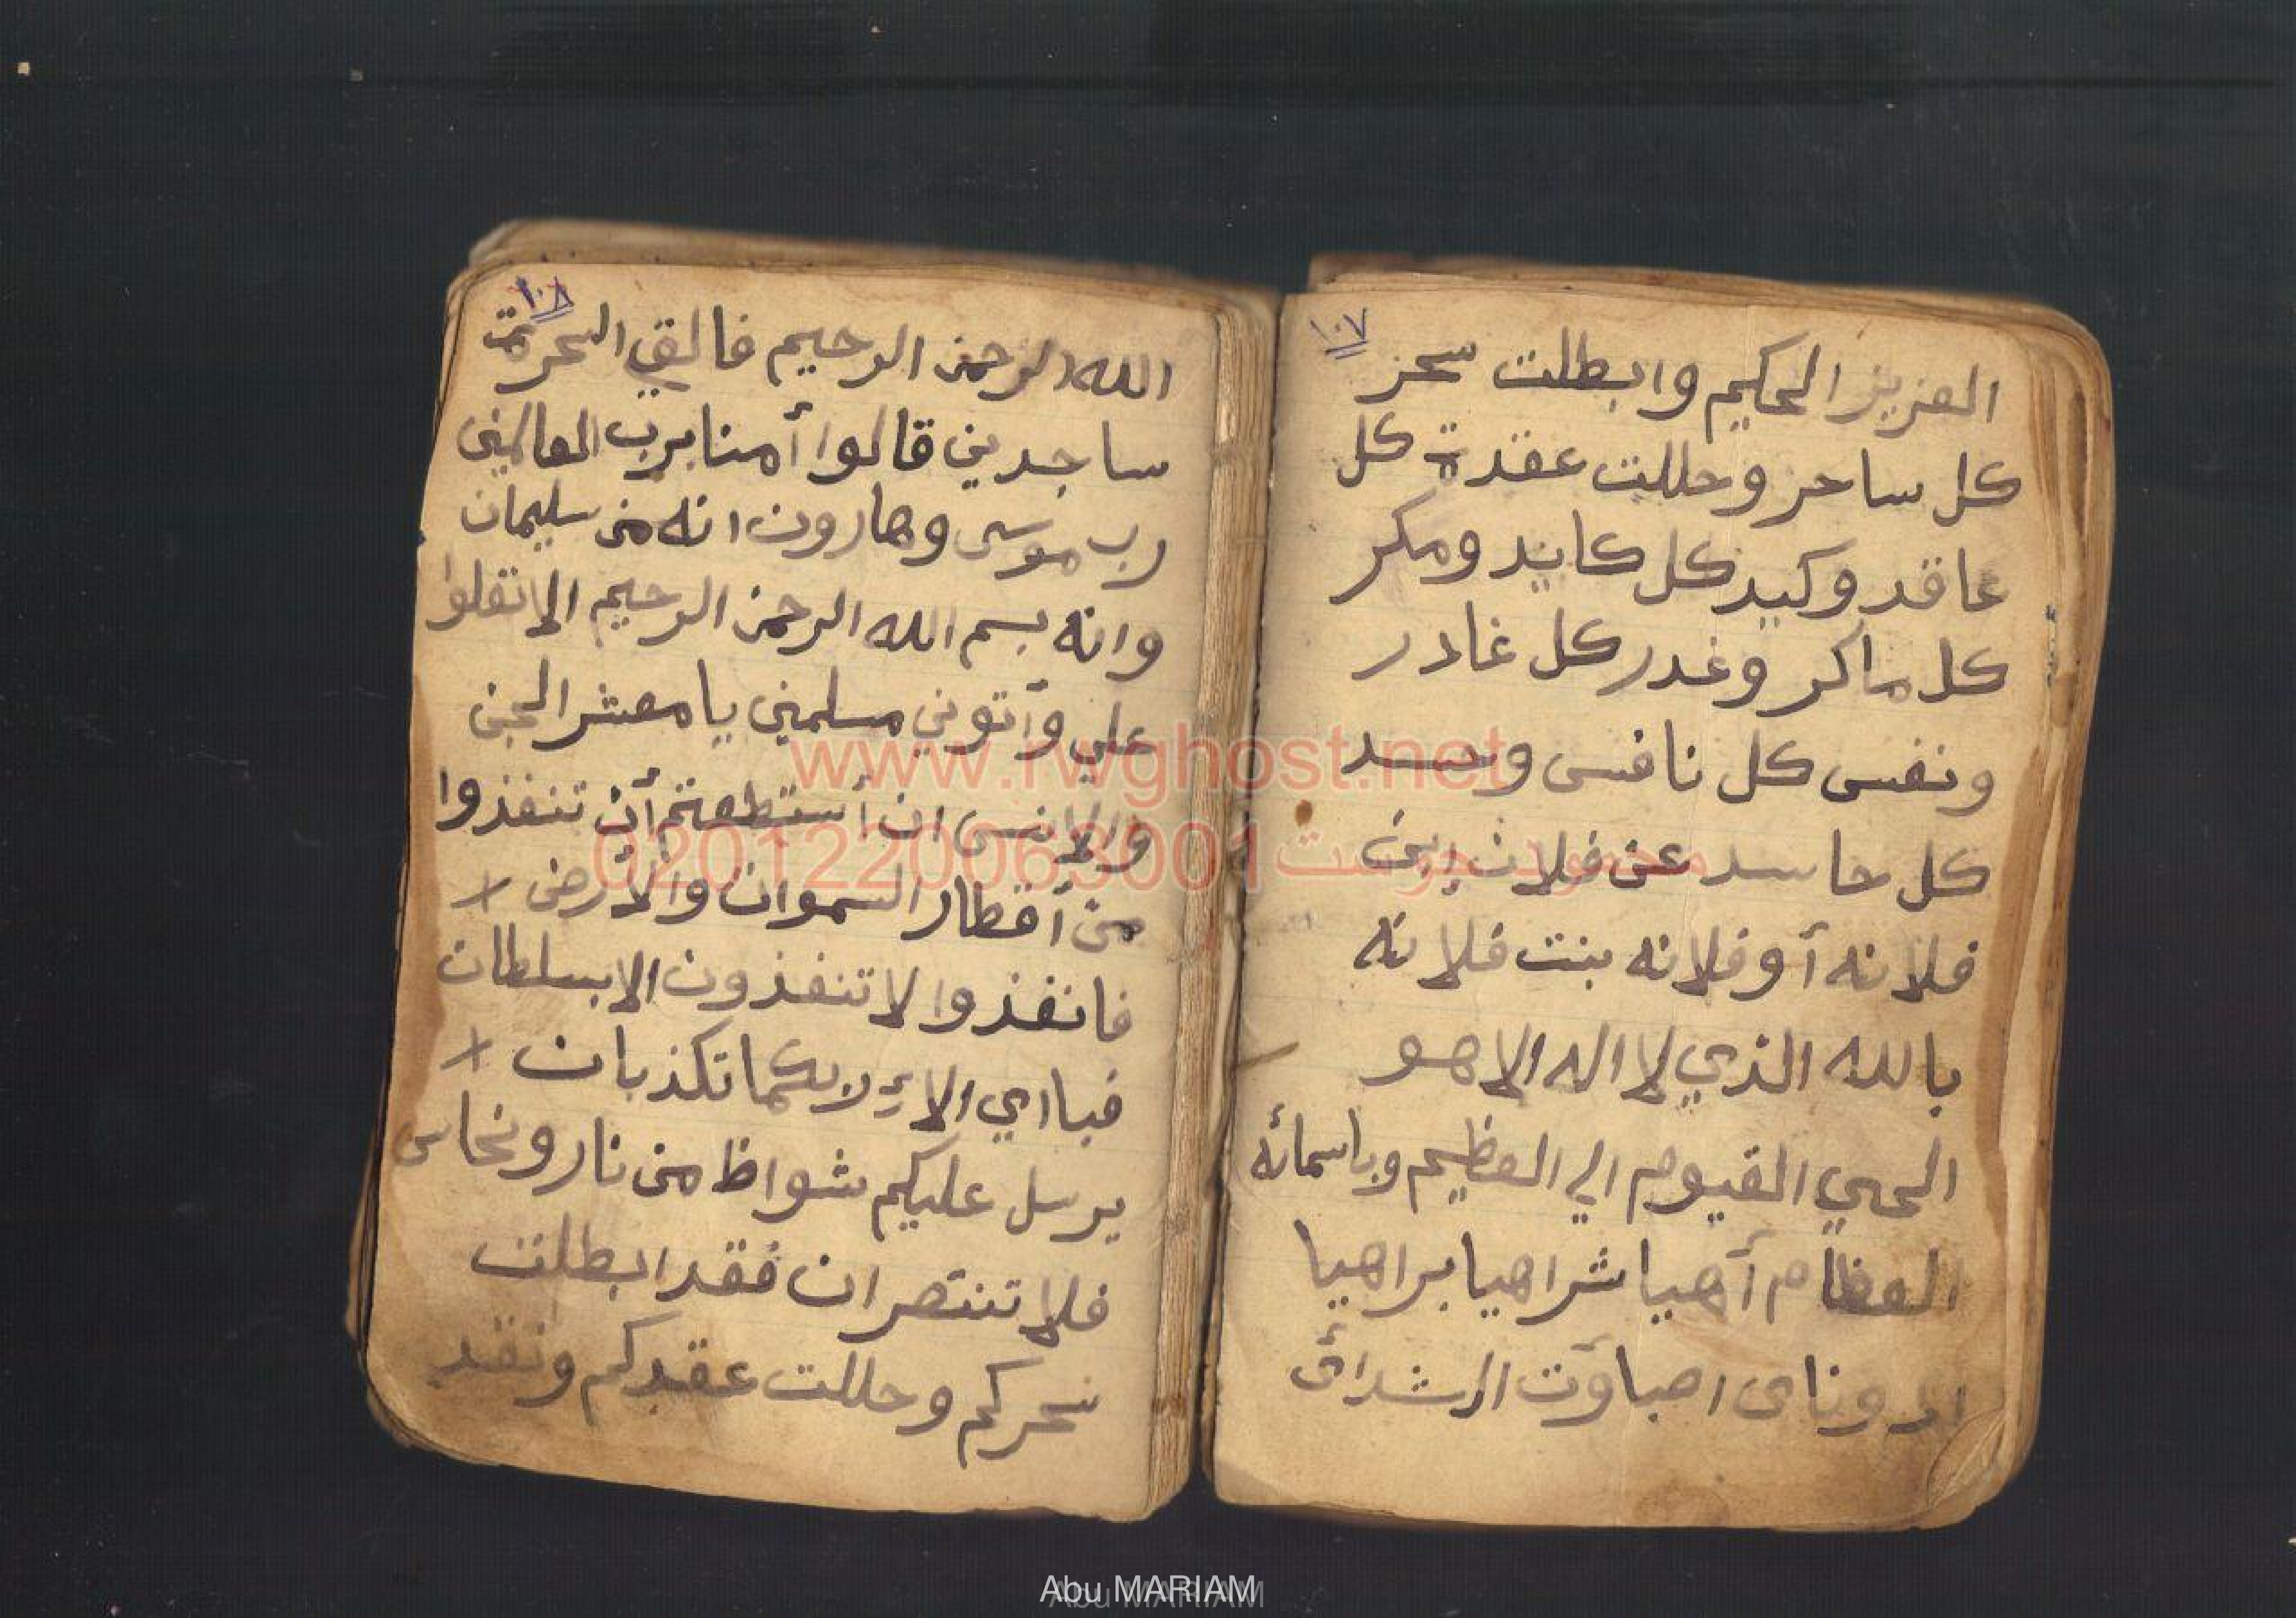 ١٠٧
العزيز الحكيم وابطلت سحر
كل ساحر وحللت عقدة كل
عاقد وكيد كل كايد ومكر
كل ماكر وغدر كل غادر
ونفس كل نافس وحسد
كل حاسد عن فلان ابن
فلانه أو فلانه بنت فلانه
بالله الذي لا اله الا هو
الحي القيوم الي العظيم وباسمائه
العظام أهيا شراهيا براهيا
ادوناى اصباؤت ال شدائ
١٠٨
الله الرحمن الرحيم فالقي السحرة
ساجدين قالوا أمنا برب العالمين
رب موسى وهارون انه من سليمان
وانه بسم الله الرحمن الرحيم الا تعلوا
علي وأتوني مسلمين يا معشر الجن
والانس ان أستطعتم أن تنفذوا
من أقطار السموات والأرض
فانفذوا لا تنفذون الا بسلطان
فبااي الاء ربكما تكذبان
يرسل عليكم شواظ من نار ونحاس
فلا تنتصران فقد ابطلت
سحركم وحللت عقدكم ونقد
www.rwghost.net
محمود جوست 0201220063001
Abu MARIAM